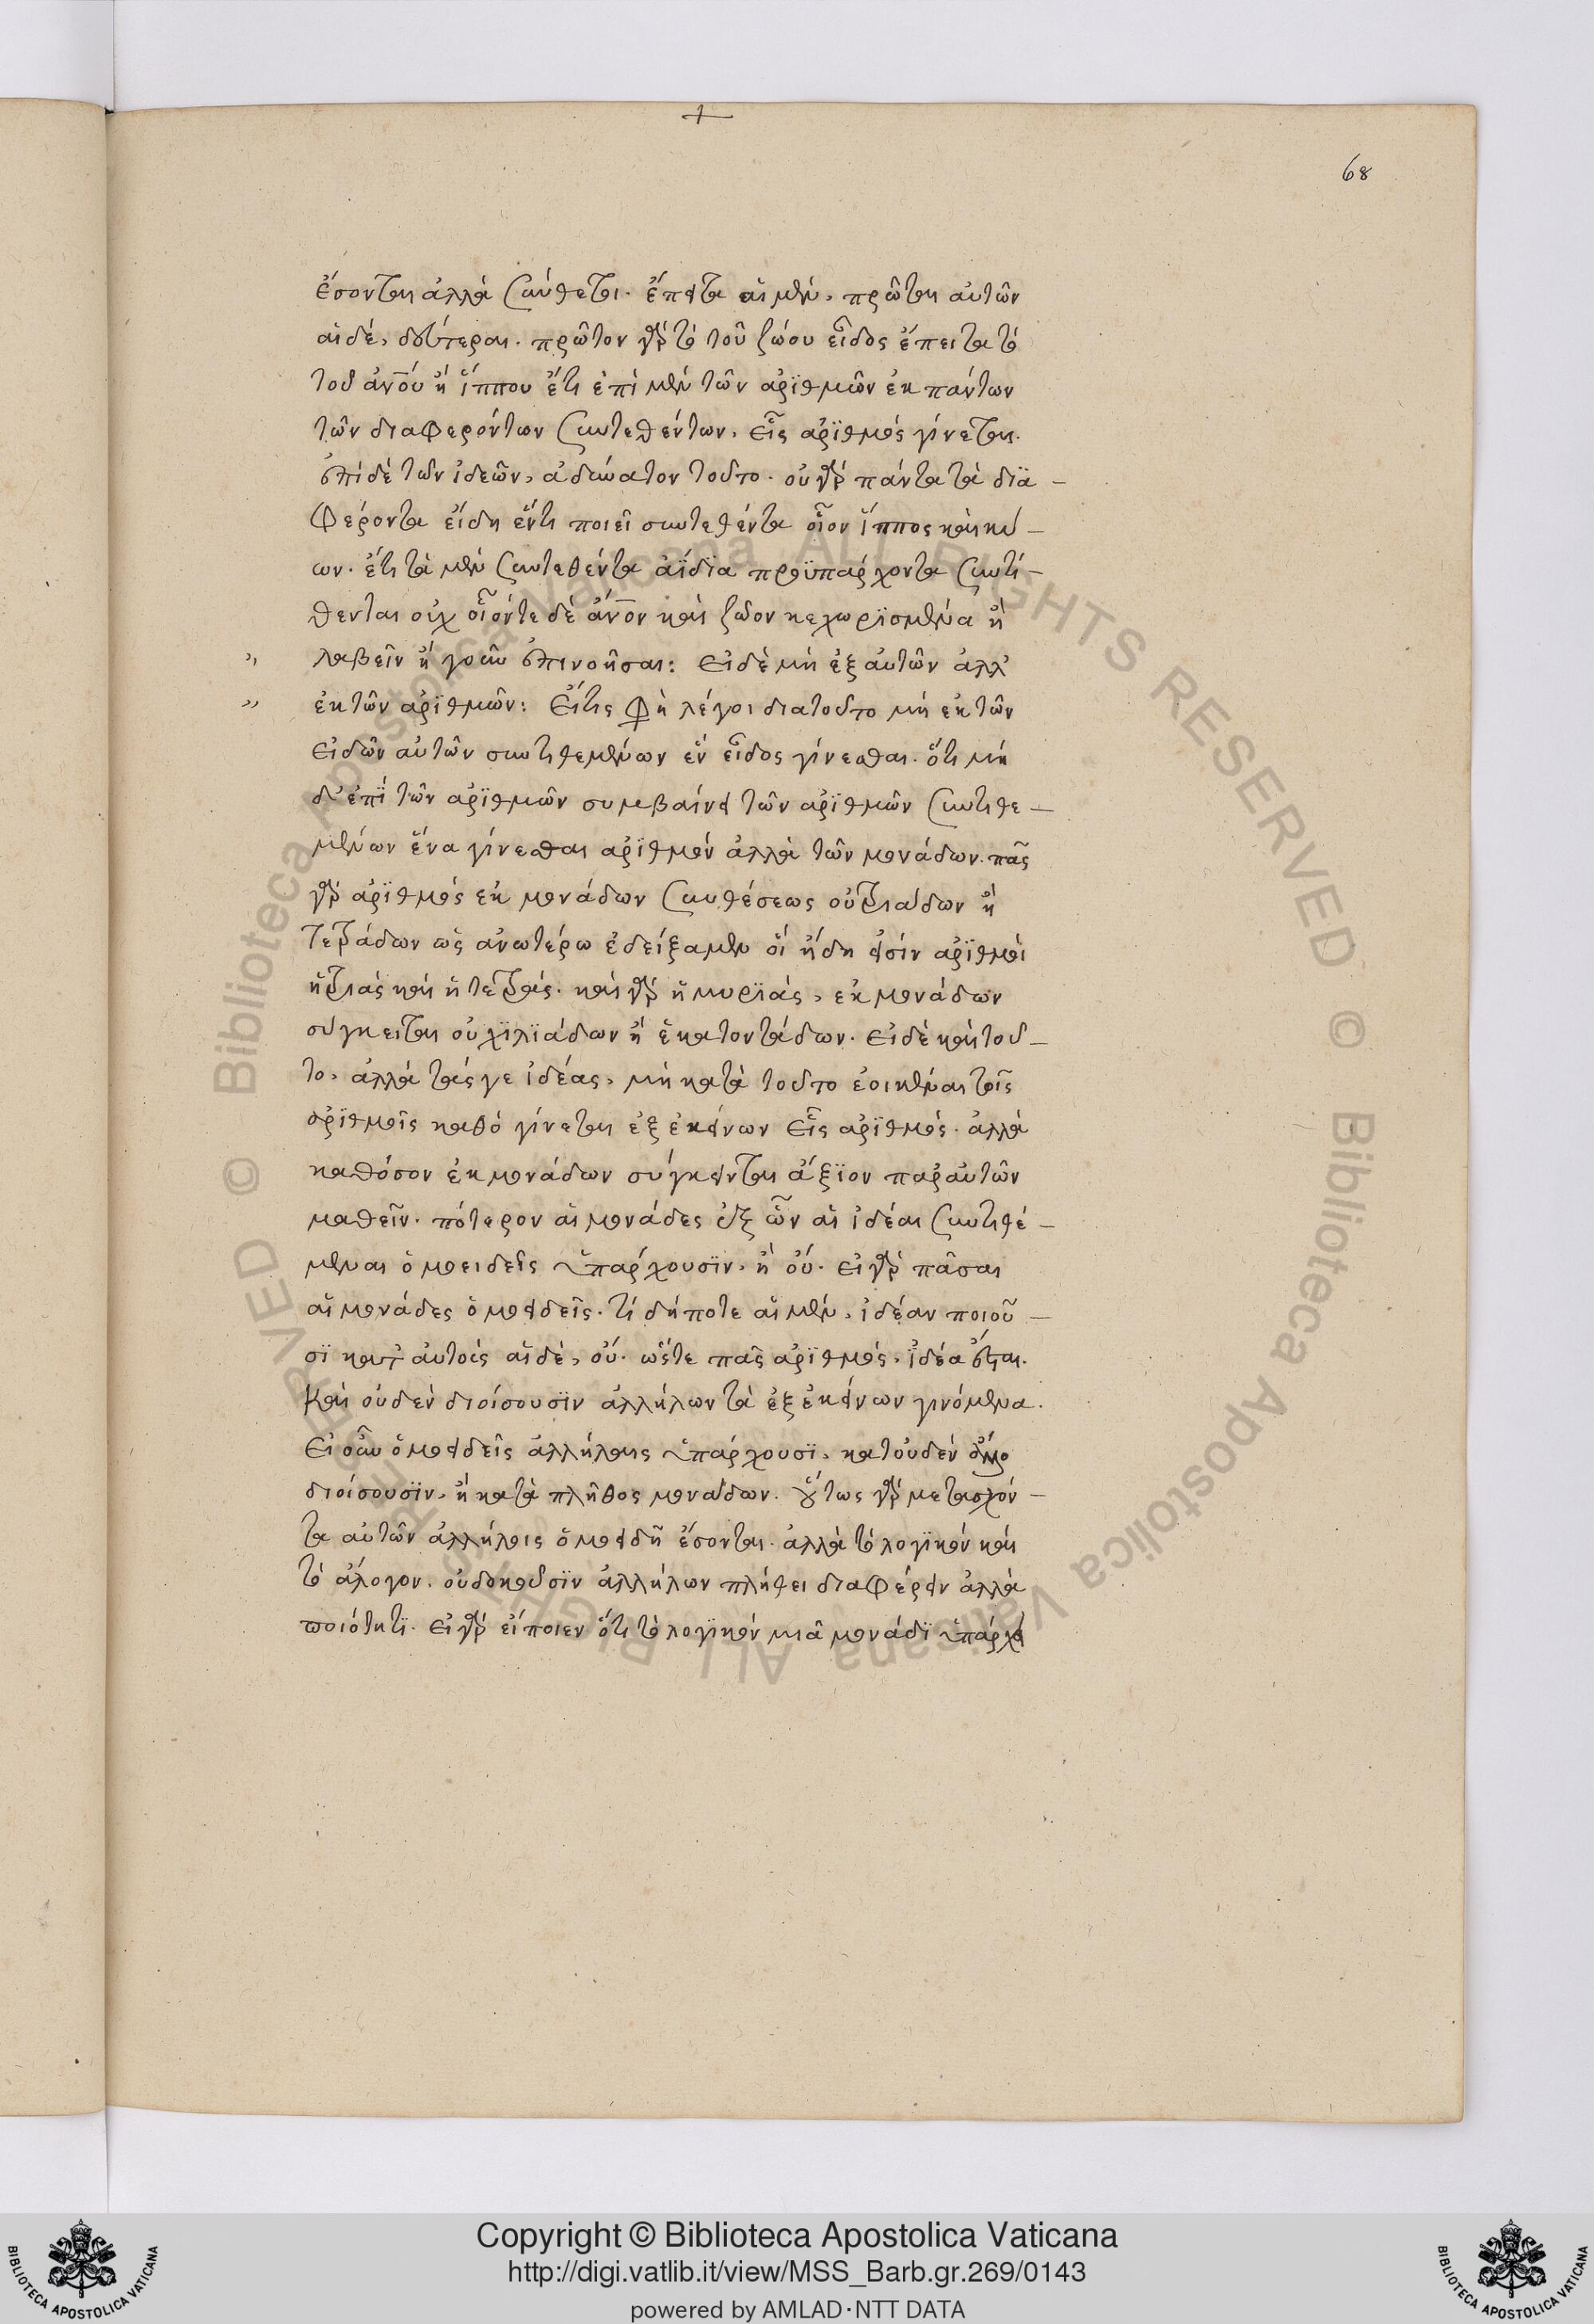 68
ἔσονται ἀλλὰ σύνθετοι. ἔπειτα αἱ μὲν, πρῶται αὐτῶν
αἱ δέ, δεύτεραι. πρῶτον γὰρ τὸ τοῦ ζώου εἶδος ἔπειτα τὸ
τοῦ ἀν̅ου ἢ ἵππου ἔτι ἐπὶ μὲν τῶν ἀρϊθμῶν ἐκ πάντων
τῶν διαφερόντων συντεθέντων, εἷς ἀρϊθμός γίνεται.
ἐπὶ δὲ τῶν ἰδεῶν, ἀδύνατον τοῦτο. οὐ γὰρ πάντα τὰ δϊα-
φέροντα εἴδη ἕν τι ποιεῖ συντεθέντα οἷον ἵππος καὶ κύ-
ων. ἔτι τὰ μὲν συντεθέντα ἀΐδϊα προϋπάρχοντα συντί-
θενται οὐχ οἷόντε δὲ ἄν̅ον καὶ ζῶον κεχωρϊσμένα ἢ
λαβεῖν ἢ γοῦν ἐπινοῆσαι: Εἰ δὲ μὴ ἐξ αὐτῶν ἀλλ'
ἐκ τῶν ἀρϊθμῶν: Εἴ τις φὴ λέγοι διατοῦτο μὴ ἐκ τῶν
εἰδῶν αὐτῶν συντιθεμένων ἓν εἶδος γίνεσθαι. ὅτι μὴ
δ' ἐπῒ τῶν ἀρϊθμῶν συμβαίνει τῶν ἀρϊθμῶν συντιθε-
μένων ἕνα γίνεσθαι ἀρϊθμόν ἀλλὰ τῶν μονάδων. πᾶς
γὰρ ἀρϊθμός ἐκ μονάδων συνθέσεως οὐ τριάδων ἢ
τετράδων ὡς ἀνωτέρω ἐδείξαμεν οἵ ἤδη εἰσίν ἀρϊθμοὶ
ἡ τριάς καὶ ἡ τετράς. καὶ γὰρ ἡ μυρϊάς, ἐκ μονάδων
σύγκειται οὐ χϊλϊάδων ἢ ἑκατοντάδων. Εἰ δὲ καὶ τοῦ-
το, ἀλλὰ τάς γε ἰδέας, μὴ κατὰ τοῦτο ἐοικέναι τοῖς
ἀρϊθμοῖς καθὸ γίνεται ἐξ ἐκείνων εἷς ἀρϊθμός. ἀλλὰ
καθόσον ἐκ μονάδων σύγκεινται ἄξϊον παρ' αὐτῶν
μαθεῖν. πότερον αἱ μονάδες ἐξ ὧν αἱ ἰδέαι συντιθέ-
μεναι ὁμοειδεῖς ὑπάρχουσϊν, ἢ οὔ. εἰ γὰρ πᾶσαι
αἱ μονάδες ὁμοειδεῖς. τί δήποτε αἱ μὲν, ἰδέαν ποιοῦ-
σϊ κατ' αὐτοὺς αἱ δὲ, οὔ. ὥστε πᾶς ἀρϊθμός, ἰδέα ἔσται.
Καὶ οὐδὲν διοίσουσϊν ἀλλήλων τὰ ἐξ ἐκείνων γινόμενα.
Εἰ οὖν ὁμοειδεῖς ἀλλήλαις ὑπάρχουσϊ, κατ' οὐδὲν ἄλλο
διοίσουσϊν, ἢ κατὰ πλῆθος μονάδων. οὕτως γὰρ μετασχόν-
τα αὐτῶν ἀλλήλοις ὁμοειδῆ ἔσονται. ἀλλὰ τὸ λογϊκὸν καὶ
τὸ ἄλογον. οὐ δοκοῦσϊν ἀλλήλων πλήθει διαφέρειν ἀλλὰ
ποιότητϊ. Εἰ γὰρ εἴποιεν ὅτι τὸ λογϊκὸν μιᾶ μονάδϊ ὑπάρχει
Copyright © Biblioteca Apostolica Vaticana
http://digi.vatlib.it/view/MSS_Barb.gr.269/0143
powered by AMLAD·NTT DATA